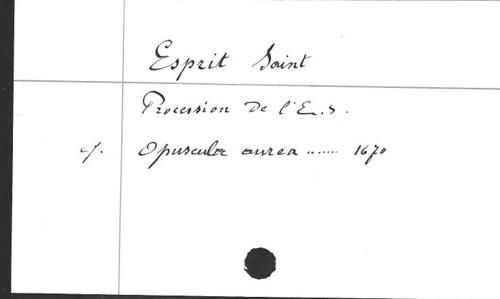 Esprit Saint
Procession de l'E. S.
cf. Opuscula aurea ...... 1670